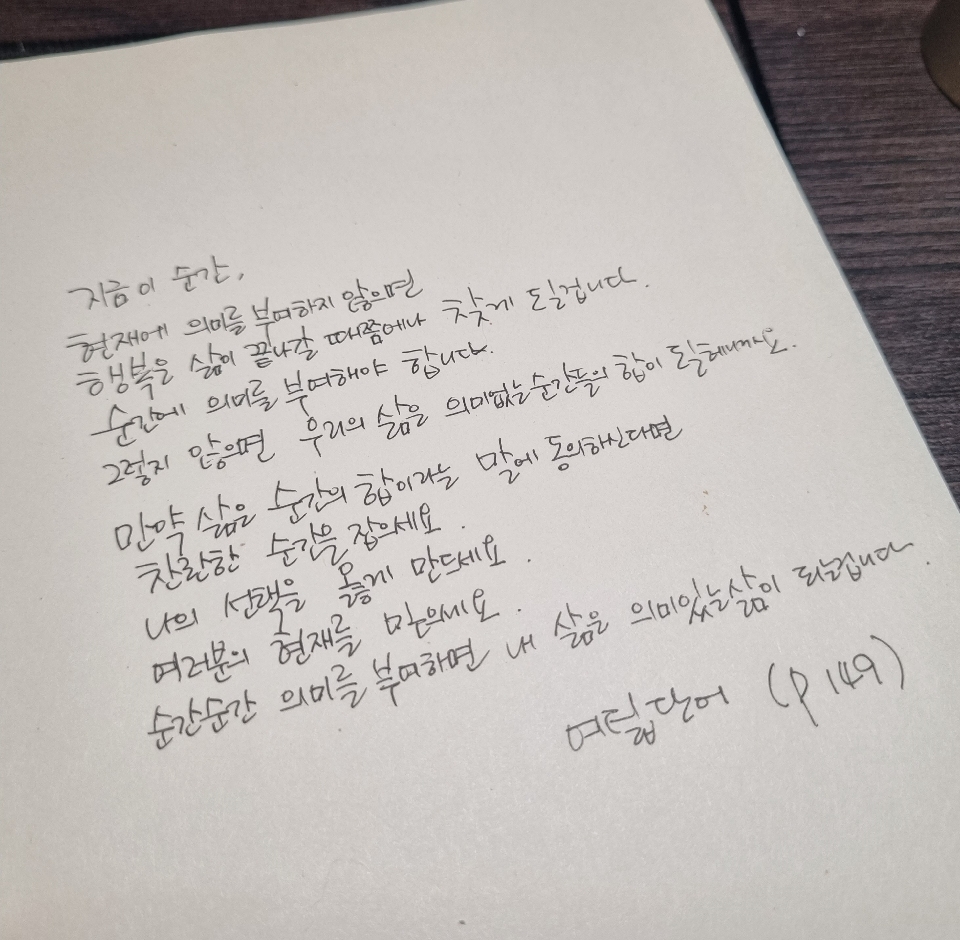 지금 이 순간,
현재에 의미를 부여하지 않으면
행복은 삶이 끝나갈 때쯤에나 찾게 될겁니다.
순간에 의미를 부여해야 합니다.
그렇지 않으면 우리의 삶은 의미없는 순간들의 합이 될테니까요.
만약 삶은 순간의 합이라는 말에 동의하신다면
찬란한 순간을 잡으세요.
나의 선택을 옳게 만드세요.
여러분의 현재를 믿으세요.
순간순간 의미를 부여하면 내 삶은 의미있는 삶이 되는겁니다.
여덟단어 (p 149)